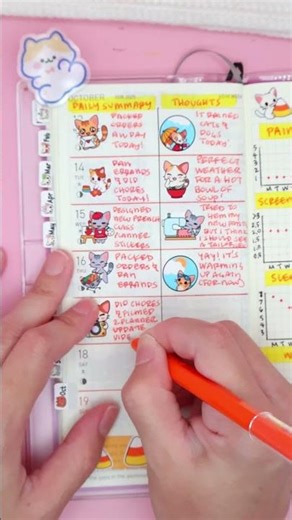 OCTOBER
DAILY SUMMARY
THOUGHTS
PACKED
ORDERS
ALL DAY
TODAY!
IT RAINED
CATS &
DOGS
TODAY!
14
RAN
ERRANDS
& DID
CHORES
TODAY!
PERFECT
WEATHER
FOR A HOT
BOWL OF
SOUP!
15
DESIGNED
NEW FRENCH
PLANNER
STICKERS
TRIED TO
HEM MY
NEW
BUT I THINK
I SHOULD SEE
A TAILOR
16
PACKED
ORDERS &
RAN
ERRANDS
YAY! IT'S
WARMING
UP AGAIN
(FOR NOW)
DID CHORES
& FILMED
2 PLANNER
UPDATE
VIDE
18
19
PAI
SCREEN
SLE
M T W
M T W